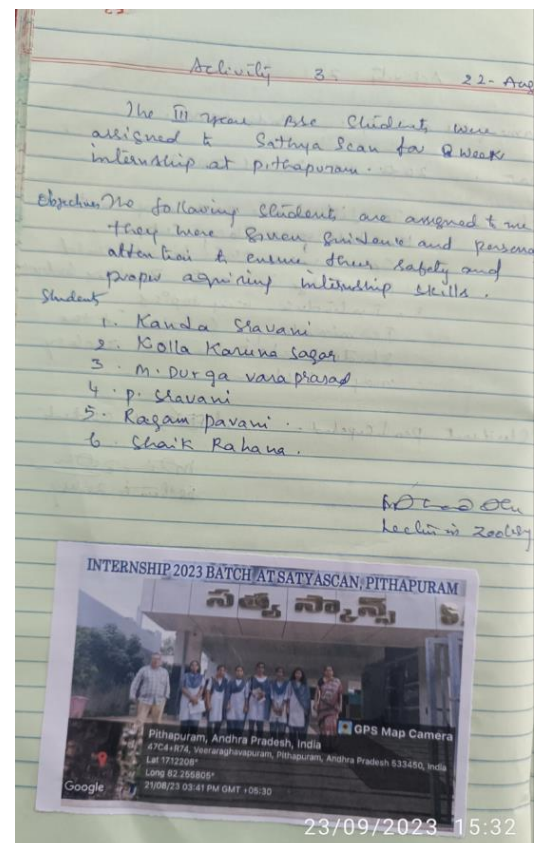 Activity 3
22-Aug
The III year BSc Students were
assigned to Sathya Scan for 8 week
internship at pithapuram.
Objective: The following students are assigned to me
they were given guidance and persona
attention to ensure their safety and
proper aquiring internship skills.
Students
1. Kanda Sravani
2. Kolla Karuna Sagar
3. M. Durga vara prasad
4. P. Sravani
5. Ragam Pavani.
6. Shaik Rahana.
Lectur in Zoology
INTERNSHIP 2023 BATCH AT SATYASCAN, PITHAPURAM
సత్య స్కాన్స్
GPS Map Camera
Pithapuram, Andhra Pradesh, India
47C4+R74, Veeraraghavapuram, Pithapuram, Andhra Pradesh 533450, India
Lat 17.12208°
Long 82.255805°
21/08/23 03:41 PM GMT +05:30
Google
23/09/2023 15:32